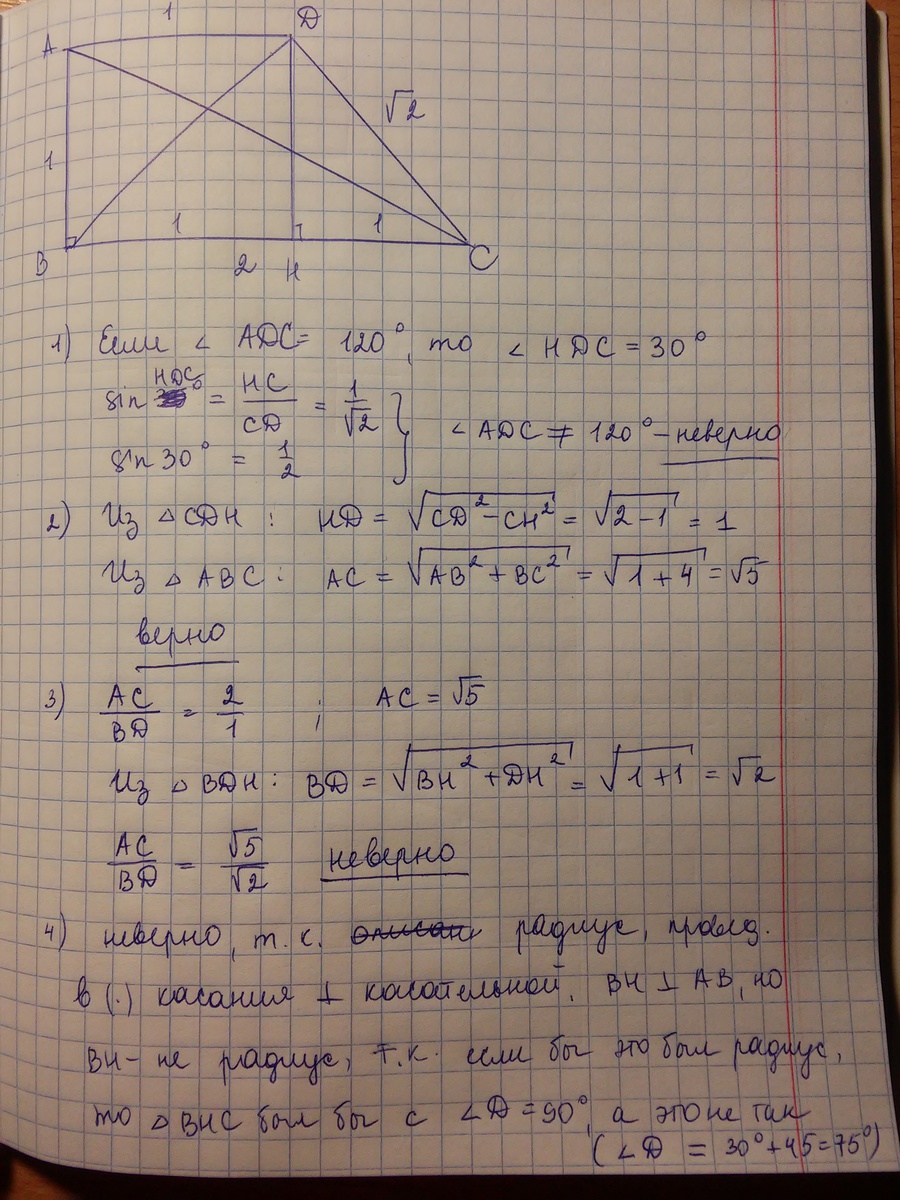 1
A
D
√2
1
1
1
B
2
H
C
1) Если ∠ ADC = 120°, то ∠ HDC = 30°
sin HDC = HC/CD = 1/√2
sin 30° = 1/2
∠ ADC ≠ 120° - неверно
2) Из △ CDH : HD = √(CD² - CH²) = √(2 - 1) = 1
Из △ ABC : AC = √(AB² + BC²) = √(1 + 4) = √5
верно
3) AC/BD = 2/1 ; AC = √5
Из △ BDH : BD = √(BH² + DH²) = √(1 + 1) = √2
AC/BD = √5/√2 неверно
4) неверно, т. к. радиус, провед.
в (·) касания ⊥ касательной. BH ⊥ AB, но
BH - не радиус, т.к. если бы это был радиус,
то △ BHC был бы с ∠D = 90°, а это не так
(∠D = 30° + 45 = 75°)